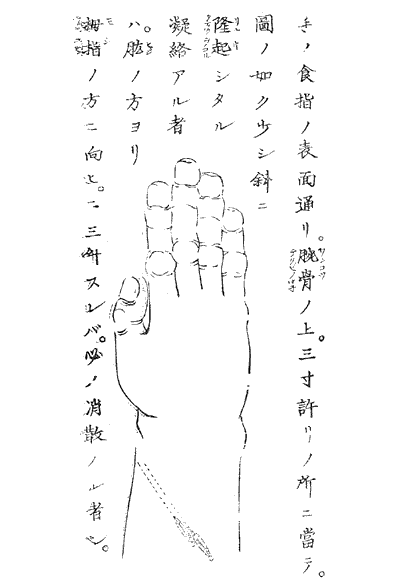 ノ食指ノ表面通リ。腕骨ノ上。三寸許リノ所ニ當テ。
圖ノ如ク少シ斜ニ
隆起シタル
凝絡アル者
ハ。肱ノ方ヨリ
拇指ノ方ニ向ヒ。二三スレバ。必消散ル者